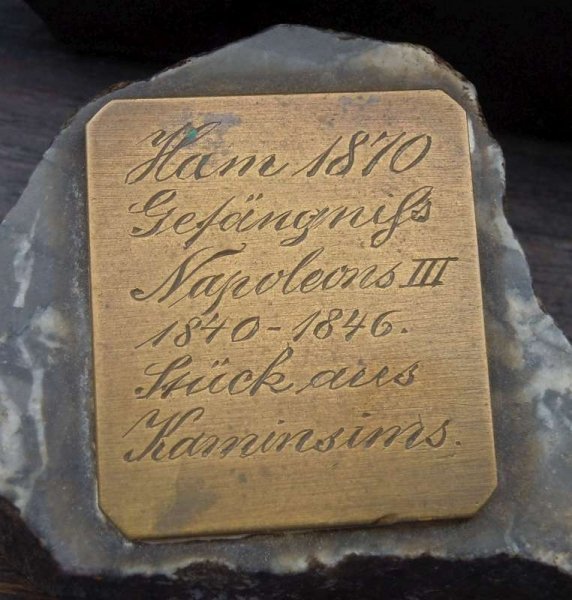 Ham 1870
Gefängniſs
Napoleons III
1840-1846.
Stück aus
Kaminsims.